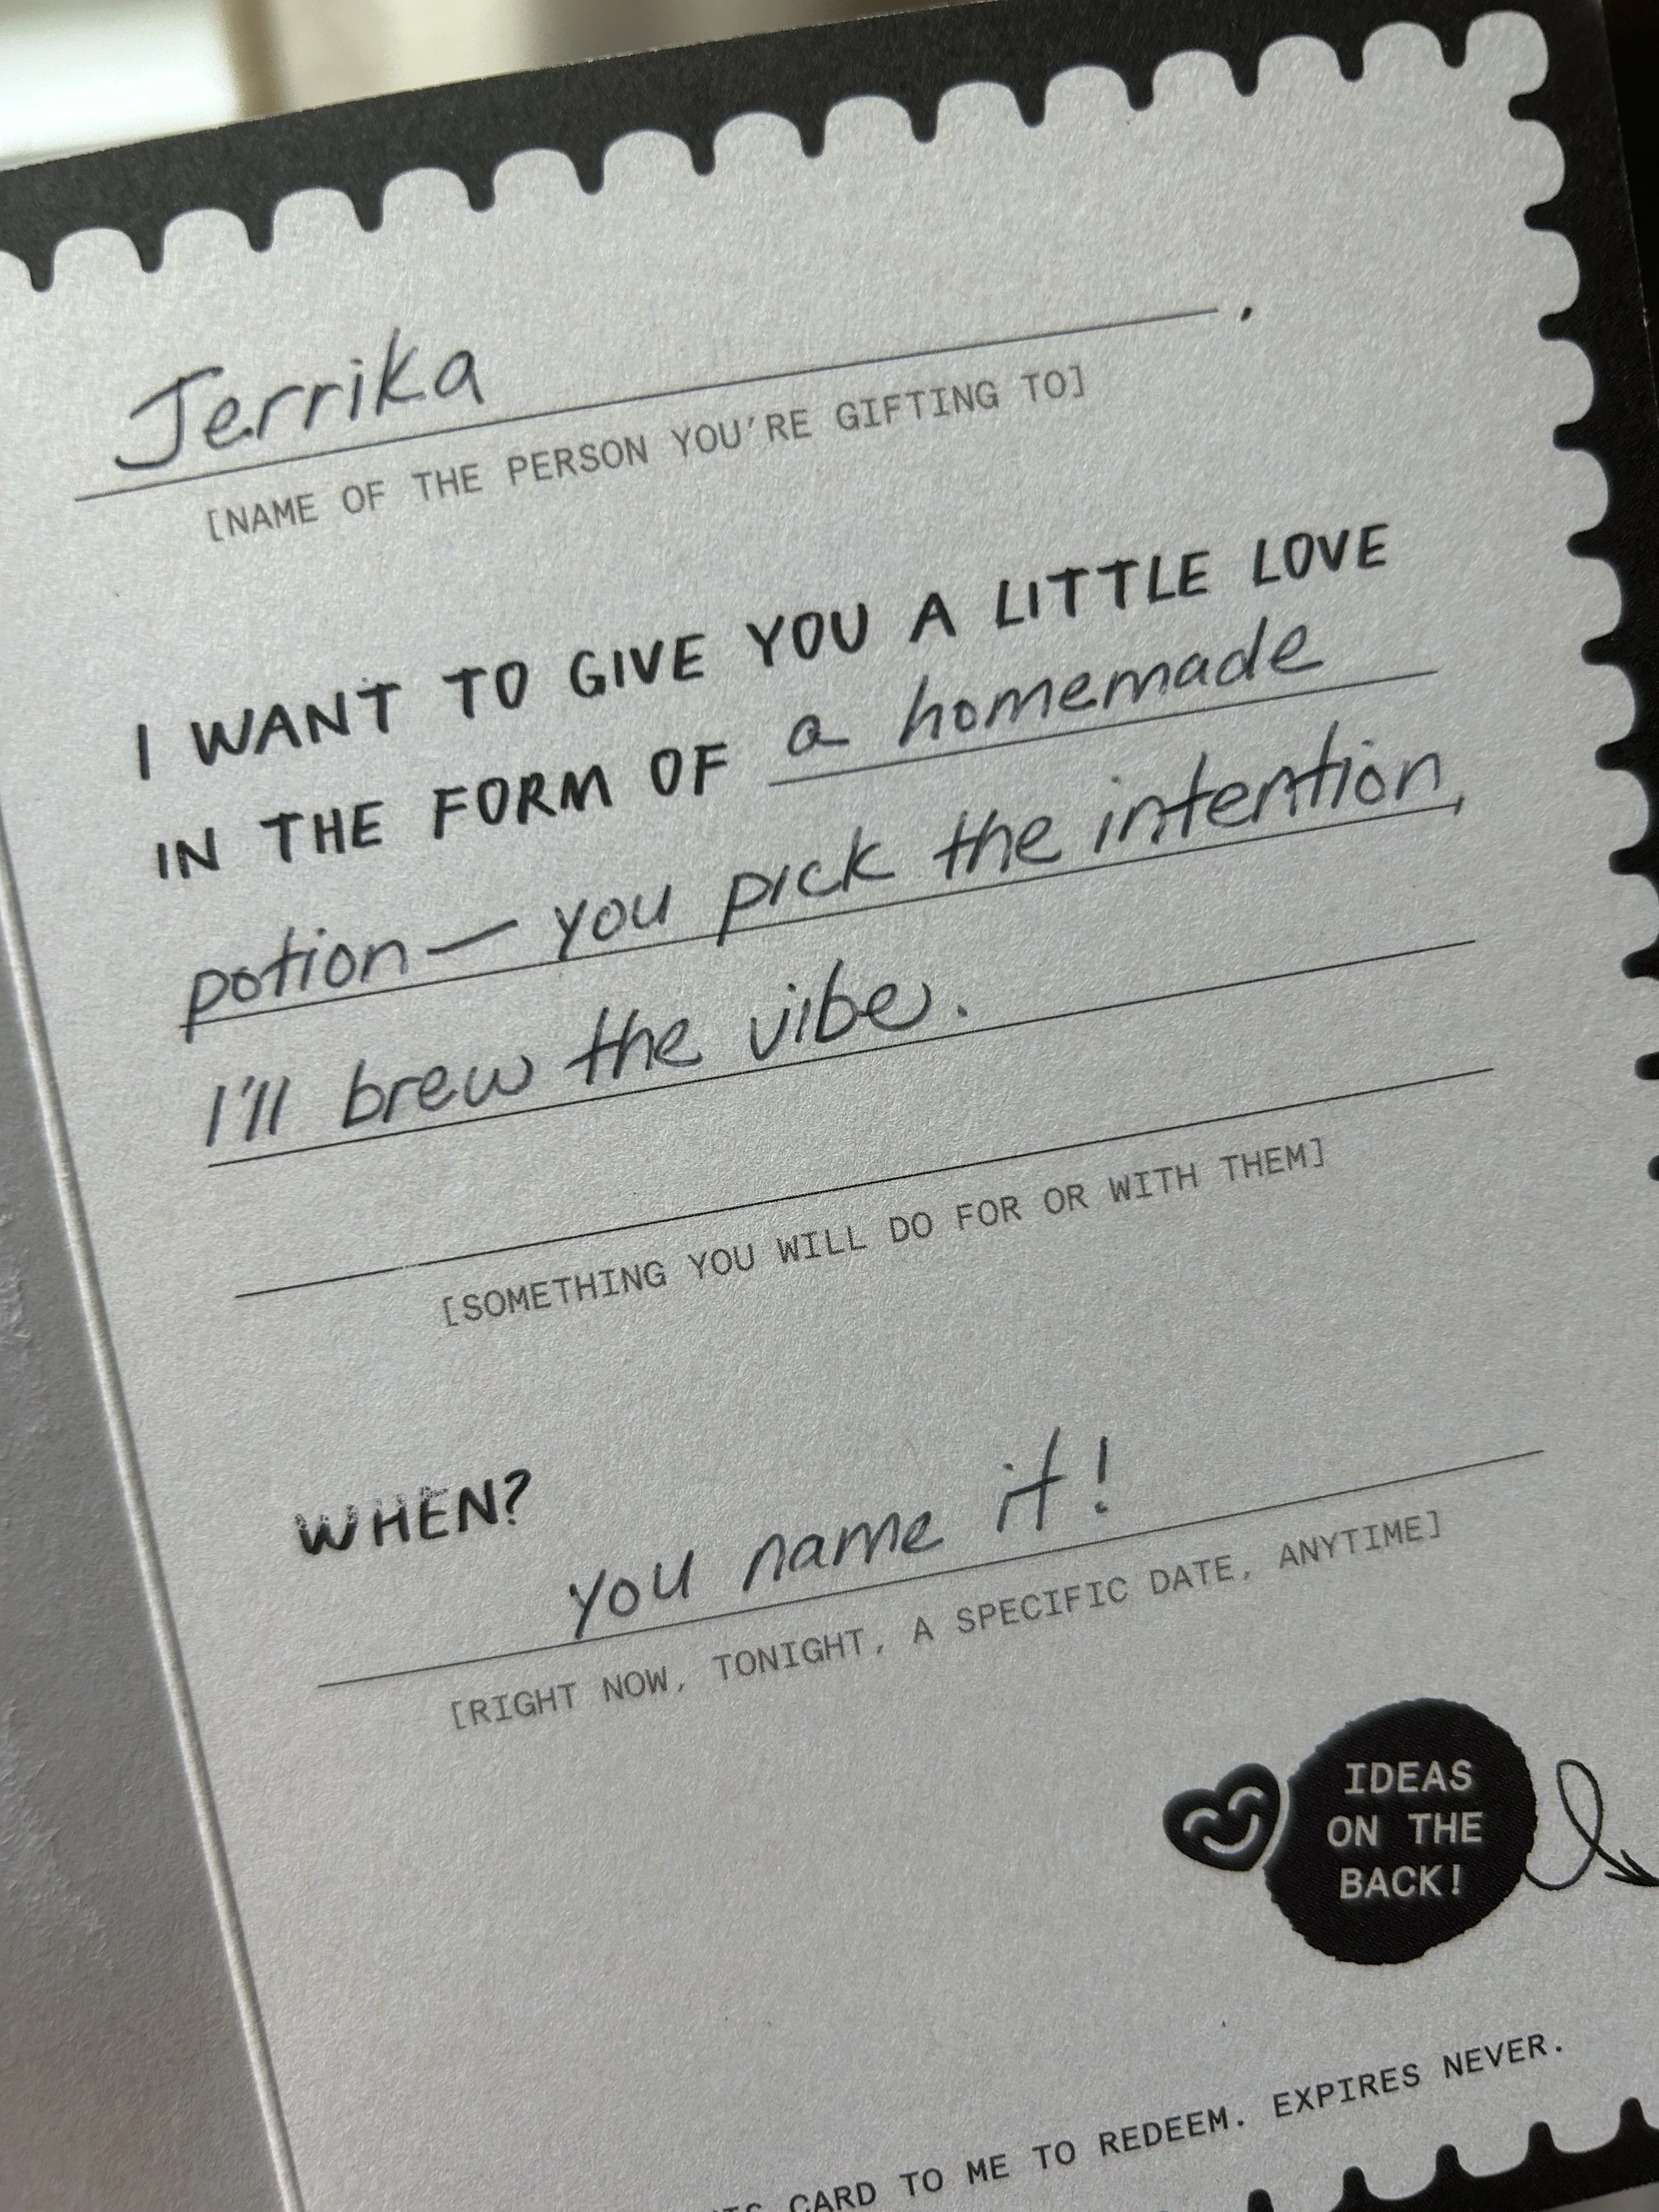 Jerrika .
[NAME OF THE PERSON YOU'RE GIFTING TO]
I WANT TO GIVE YOU A LITTLE LOVE
IN THE FORM OF a homemade
potion — you pick the intention,
I'll brew the vibe.
[SOMETHING YOU WILL DO FOR OR WITH THEM]
WHEN?
you name it!
[RIGHT NOW, TONIGHT, A SPECIFIC DATE, ANYTIME]
IDEAS
ON THE
BACK!
CARD TO ME TO REDEEM. EXPIRES NEVER.